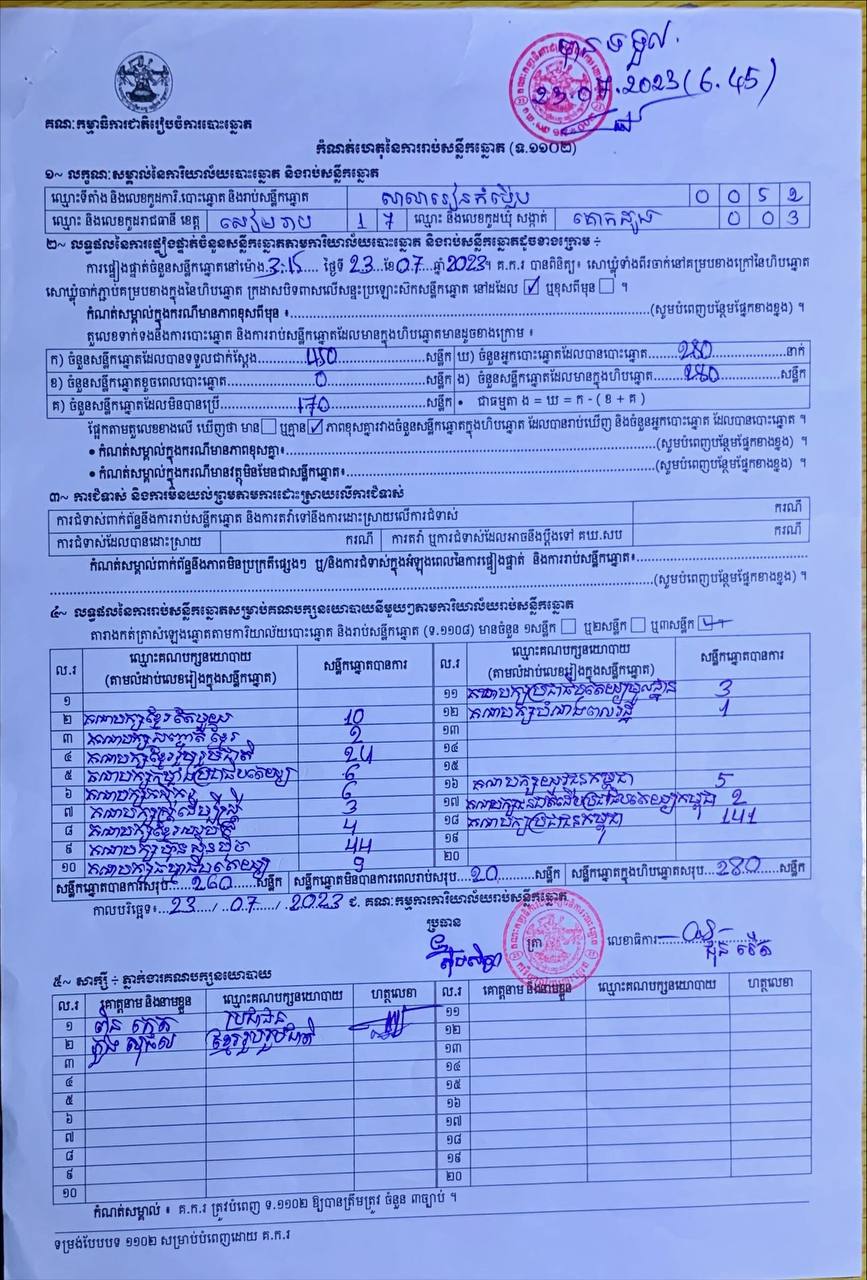 បានទទួល.
23.07.2023 (6.45)
គណៈកម្មាធិការជាតិរៀបចំការបោះឆ្នោត
កំណត់ហេតុនៃការរាប់សន្លឹកឆ្នោត (ទ.១១០២)
១~ លក្ខណៈសម្គាល់នៃការិយាល័យបោះឆ្នោត និងរាប់សន្លឹកឆ្នោត
ឈ្មោះទីតាំង និងលេខកូដការិ.បោះឆ្នោត និងរាប់សន្លឹកឆ្នោត សាលារៀន 0 0 5 2
ឈ្មោះ និងលេខកូដរាជធានី ខេត្ត សៀមរាប 1 7 ឈ្មោះ និងលេខកូដឃុំ សង្កាត់ គោកដូង 0 0 3
២~ លទ្ធផលនៃការផ្ទៀងផ្ទាត់ចំនួនសន្លឹកឆ្នោតតាមការិយាល័យបោះឆ្នោត និងរាប់សន្លឹកឆ្នោតដូចខាងក្រោម ÷
ការផ្ទៀងផ្ទាត់ចំនួនសន្លឹកឆ្នោតនៅម៉ោង 3:15 ថ្ងៃទី 23 ខែ 07 ឆ្នាំ 2023។ គ.ក.រ បានពិនិត្យ៖ សោឃ្លុំទាំងពីរចាក់នៅគម្របខាងក្រៅនៃហិបឆ្នោត
សោឃ្លុំចាក់ភ្ជាប់គម្របខាងក្នុងនៃហិបឆ្នោត ក្រដាសបិទពាសលើសន្ទះប្រឡោះស៊ិកសន្លឹកឆ្នោត នៅដដែល ☑ ឬខុសពីមុន ☐ ។
កំណត់សម្គាល់ក្នុងករណីមានភាពខុសពីមុន ៖ (សូមបំពេញបន្ថែមផ្នែកខាងខ្នង) ។
តួលេខទាក់ទងនឹងការបោះឆ្នោត និងការរាប់សន្លឹកឆ្នោតដែលមានក្នុងហិបឆ្នោតមានដូចខាងក្រោម ៖
ក) ចំនួនសន្លឹកឆ្នោតដែលបានទទួលជាក់ស្តែង 450 សន្លឹក ឃ) ចំនួនអ្នកបោះឆ្នោតដែលបានបោះឆ្នោត 280 នាក់
ខ) ចំនួនសន្លឹកឆ្នោតខូចពេលបោះឆ្នោត 0 សន្លឹក ង) ចំនួនសន្លឹកឆ្នោតដែលមានក្នុងហិបឆ្នោត 280 សន្លឹក
គ) ចំនួនសន្លឹកឆ្នោតដែលមិនបានប្រើ 170 សន្លឹក • ជាធម្មតា ង = ឃ = ក - ( ខ + គ )
ផ្អែកតាមតួលេខខាងលើ ឃើញថា មាន ☐ ឬគ្មាន ☑ ភាពខុសគ្នារវាងចំនួនសន្លឹកឆ្នោតក្នុងហិបឆ្នោត ដែលបានរាប់ឃើញ និងចំនួនអ្នកបោះឆ្នោត ដែលបានបោះឆ្នោត ។
• កំណត់សម្គាល់ក្នុងករណីមានភាពខុសគ្នា៖ (សូមបំពេញបន្ថែមផ្នែកខាងខ្នង) ។
• កំណត់សម្គាល់ក្នុងករណីមានវត្ថុមិនមែនជាសន្លឹកឆ្នោត៖ (សូមបំពេញបន្ថែមផ្នែកខាងខ្នង) ។
៣~ ការជំទាស់ និងការមិនយល់ព្រមតាមការដោះស្រាយរលើការជំទាស់
ការជំទាស់ពាក់ព័ន្ធនឹងការរាប់សន្លឹកឆ្នោត និងការតវ៉ាទៅនឹងការដោះស្រាយលើការជំទាស់ ករណី
ការជំទាស់ដែលបានដោះស្រាយ ករណី ការតវ៉ា ឬការជំទាស់ដែលអាចនឹងប្តឹងទៅ គឃ.សប ករណី
កំណត់សម្គាល់ពាក់ព័ន្ធនឹងភាពមិនប្រក្រតីផ្សេងៗ ឬ/និងការជំទាស់ក្នុងអំឡុងពេលនៃការផ្ទៀងផ្ទាត់ និងការរាប់សន្លឹកឆ្នោត៖
(សូមបំពេញបន្ថែមផ្នែកខាងខ្នង) ។
៤~ លទ្ធផលនៃការរាប់សន្លឹកឆ្នោតសម្រាប់គណបក្សនយោបាយនីមួយៗតាមការិយាល័យរាប់សន្លឹកឆ្នោត
តារាងកត់ត្រាសំឡេងឆ្នោតតាមការិយាល័យបោះឆ្នោត និងរាប់សន្លឹកឆ្នោត (ទ.១១០៨) មានចំនួន ១សន្លឹក ☐ ឬ២សន្លឹក ☐ ឬ៣សន្លឹក ☑
ល.រ ឈ្មោះគណបក្សនយោបាយ (តាមលំដាប់លេខរៀងក្នុងសន្លឹកឆ្នោត) សន្លឹកឆ្នោតបានការ ល.រ ឈ្មោះគណបក្សនយោបាយ (តាមលំដាប់លេខរៀងក្នុងសន្លឹកឆ្នោត) សន្លឹកឆ្នោតបានការ
១ ១១ គណបក្សប្រជាធិបតេយ្យមូលដ្ឋាន 3
២ គណបក្សខ្មែរតែមួយ 10 ១២ គណបក្សបំណាងពលរដ្ឋ 1
៣ គណបក្សសញ្ជាតិខ្មែរ 2 ១៣
៤ គណបក្សខ្មែររួបរួមជាតិ 24 ១៤
៥ គណបក្សក្មេងប្រជាធិបតេយ្យ 6 ១៥
៦ គណបក្សកសិករ 6 ១៦ គណបក្សយុវជនកម្ពុជា 5
៧ គណបក្សស្ត្រីដើម្បីស្ត្រី 3 ១៧ គណបក្សជនជាតិដើមប្រជាធិបតេយ្យកម្ពុជា 2
៨ គណបក្សខ្មែរ 4 ១៨ គណបក្សប្រជាជនកម្ពុជា 141
៩ គណបក្សហ៊្វុនស៊ិនប៉ិច 44 ១៩
១០ គណបក្សធម្មាធិបតេយ្យ 9 ២០
សន្លឹកឆ្នោតបានការសរុប 260 សន្លឹក សន្លឹកឆ្នោតមិនបានការពេលរាប់សរុប 20 សន្លឹក សន្លឹកឆ្នោតក្នុងហិបឆ្នោតសរុប 280 សន្លឹក
កាលបរិច្ឆេទ៖ 23 / 07 / 2023 ជ. គណៈកម្មការការិយាល័យរាប់សន្លឹកឆ្នោត
ប្រធាន ត្រា លេខាធិការ
៥~ សាក្សី ÷ ភ្នាក់ងារគណបក្សនយោបាយ
ល.រ គោត្តនាម និងនាមខ្លួន ឈ្មោះគណបក្សនយោបាយ ហត្ថលេខា ល.រ គោត្តនាម និងនាមខ្លួន ឈ្មោះគណបក្សនយោបាយ ហត្ថលេខា
១ ប្រជាជន ១១
២ ខ្មែររួបរួមជាតិ ១២
៣ ១៣
៤ ១៤
៥ ១៥
៦ ១៦
៧ ១៧
៨ ១៨
៩ ១៩
១០ ២០
កំណត់សម្គាល់ ៖ គ.ក.រ ត្រូវបំពេញ ទ.១១០២ ឱ្យបានត្រឹមត្រូវ ចំនួន ៣ច្បាប់ ។
ទម្រង់បែបបទ ១១០២ សម្រាប់បំពេញដោយ គ.ក.រ